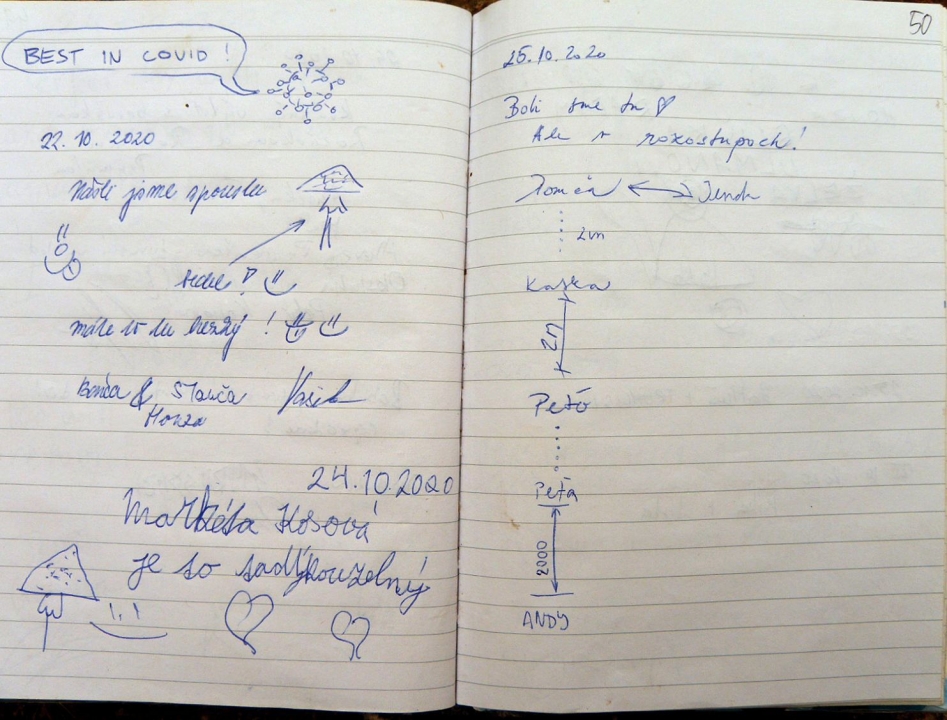 BEST IN COVID!
22. 10. 2020
Našli jsme spoustu
máte to tu hezký!
Banča & Stanča
Honza
24.10.2020
Markéta Kosová
je to tady kouzelný
50
25.10.2020
Boli sme tu
Ale v rozostupoch!
Tomča Jenda
2m
Kaśka
2m
Peťo
Peťa
2000
ANDY